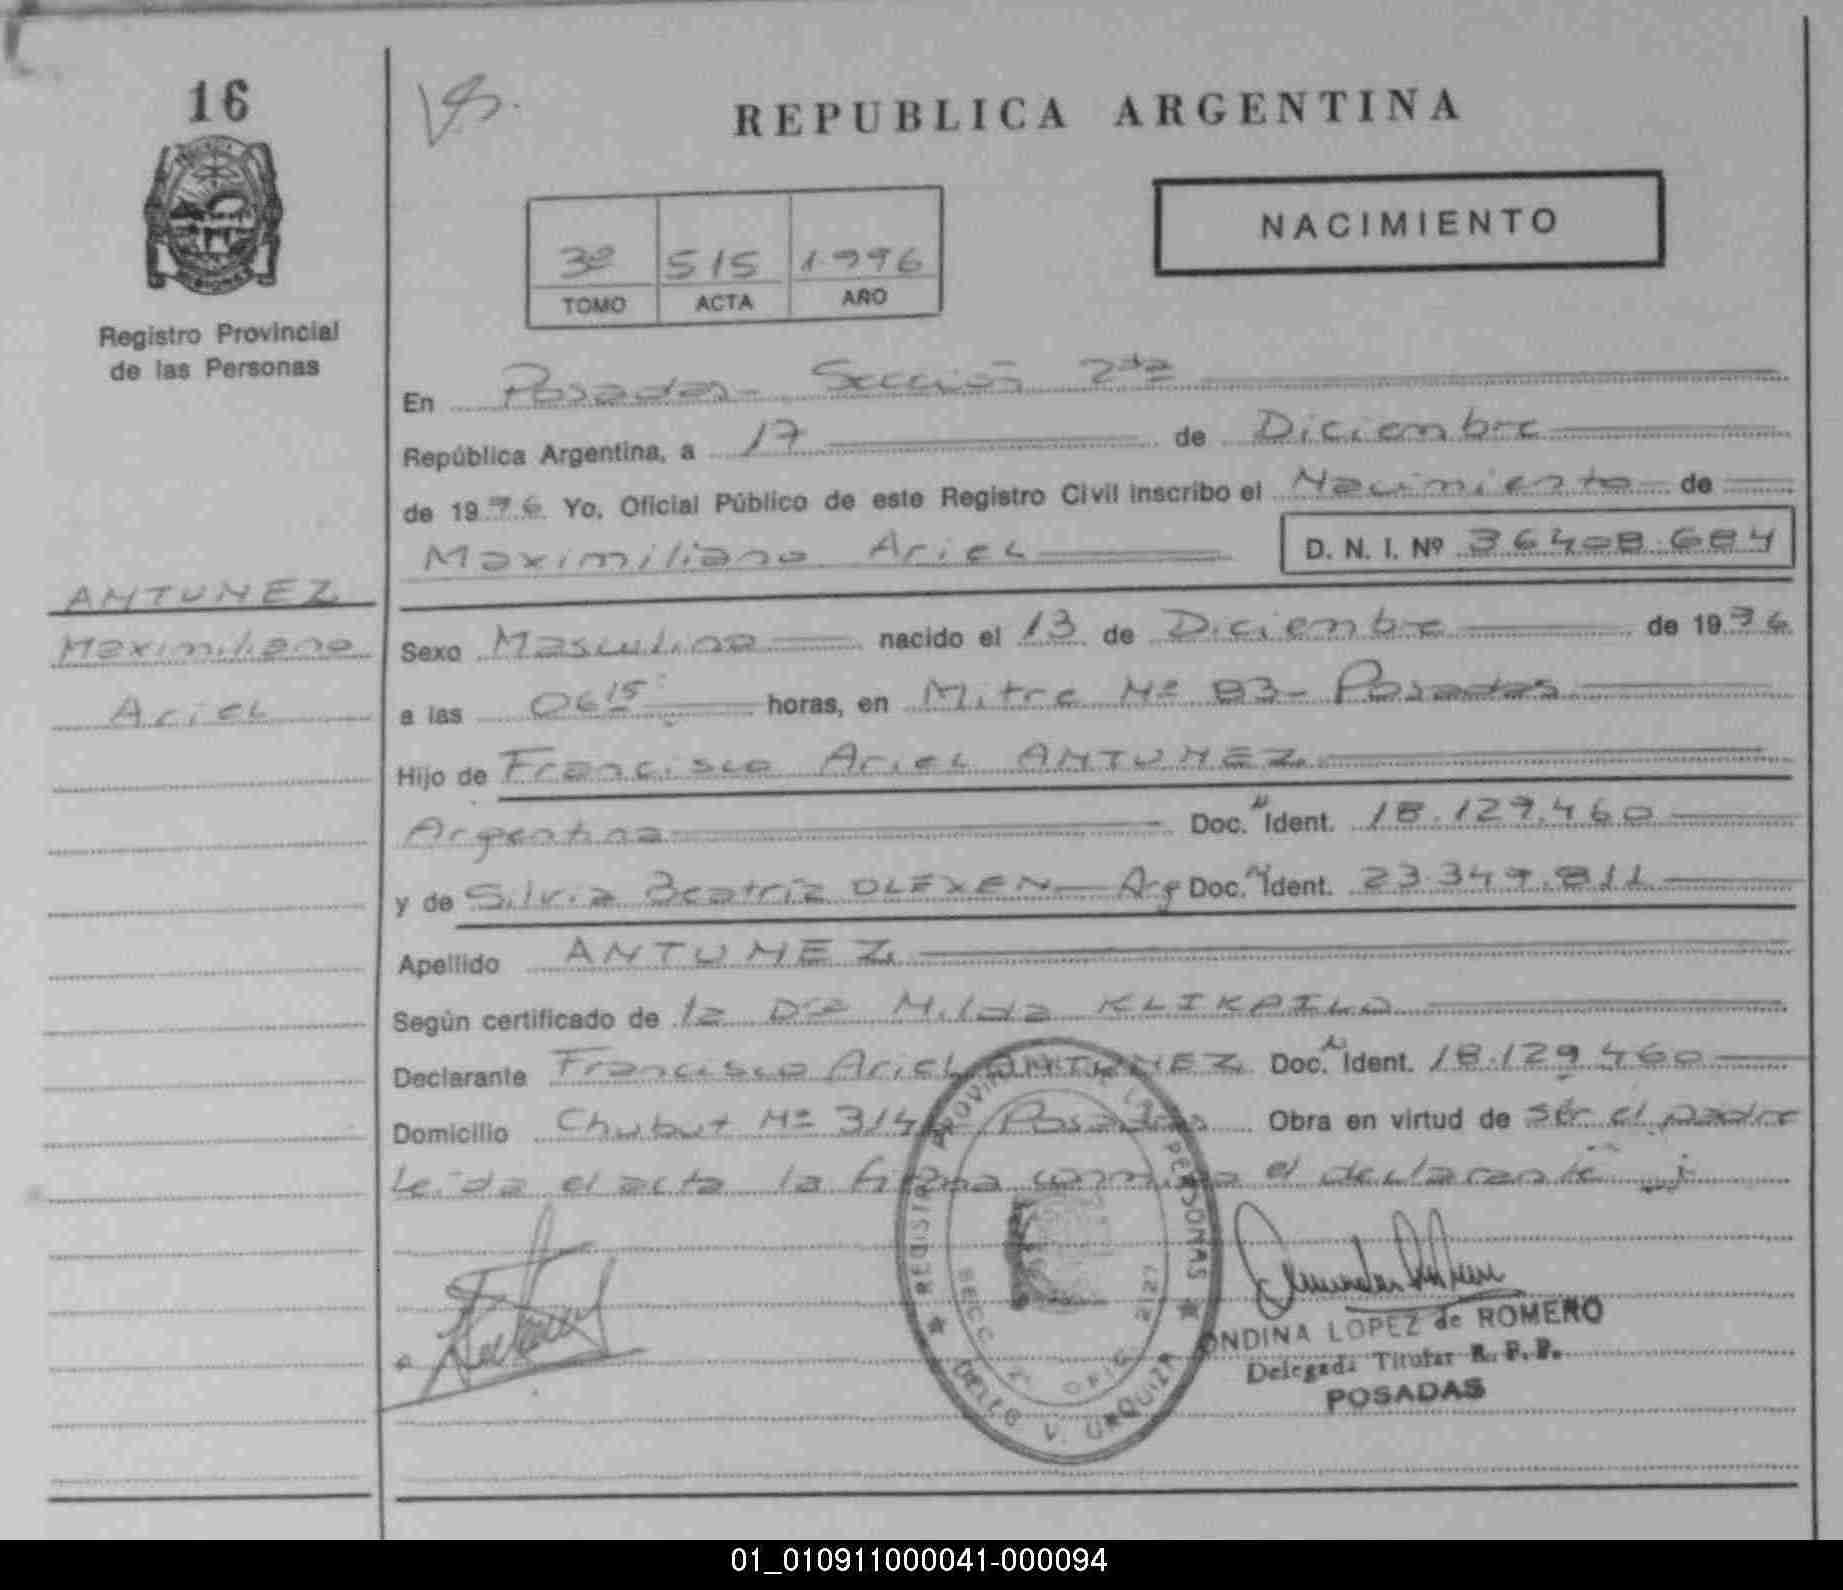 16
REPUBLICA ARGENTINA
NACIMIENTO
3º 515 1996
TOMO ACTA AÑO
Registro Provincial
de las Personas
En Posadas - Sección 2da
República Argentina, a 17 de Diciembre
de 1996 Yo, Oficial Público de este Registro Civil inscribo el Nacimiento de
Maximiliano Ariel D. N. I. Nº 36408.684
ANTUNEZ
Maximiliano
Ariel
Sexo Masculino nacido el 13 de Diciembre de 1996
a las 06 15 horas, en Mitre Nº 83 - Posadas
Hijo de Francisco Ariel ANTUNEZ
Argentina Doc. N Ident. 18.129.460
y de Silvia Beatriz OLEXEN - Arg Doc. N Ident. 23.349.811
Apellido ANTUNEZ
Según certificado de la Dra Nilda
Declarante Francisco Ariel ANTUNEZ Doc. N Ident. 18.129.460
Domicilio Chubut Nº 314 Posadas Obra en virtud de ser el padre
Leida el acta la firma conmigo el declarante
REGISTRO PROVINCIAL DE LAS PERSONAS
SECC. 2º OFIC. 2127
DELLE V. URQUIZA
ONDINA LOPEZ de ROMERO
Delegada Titular R. P. P.
POSADAS
01_010911000041-000094